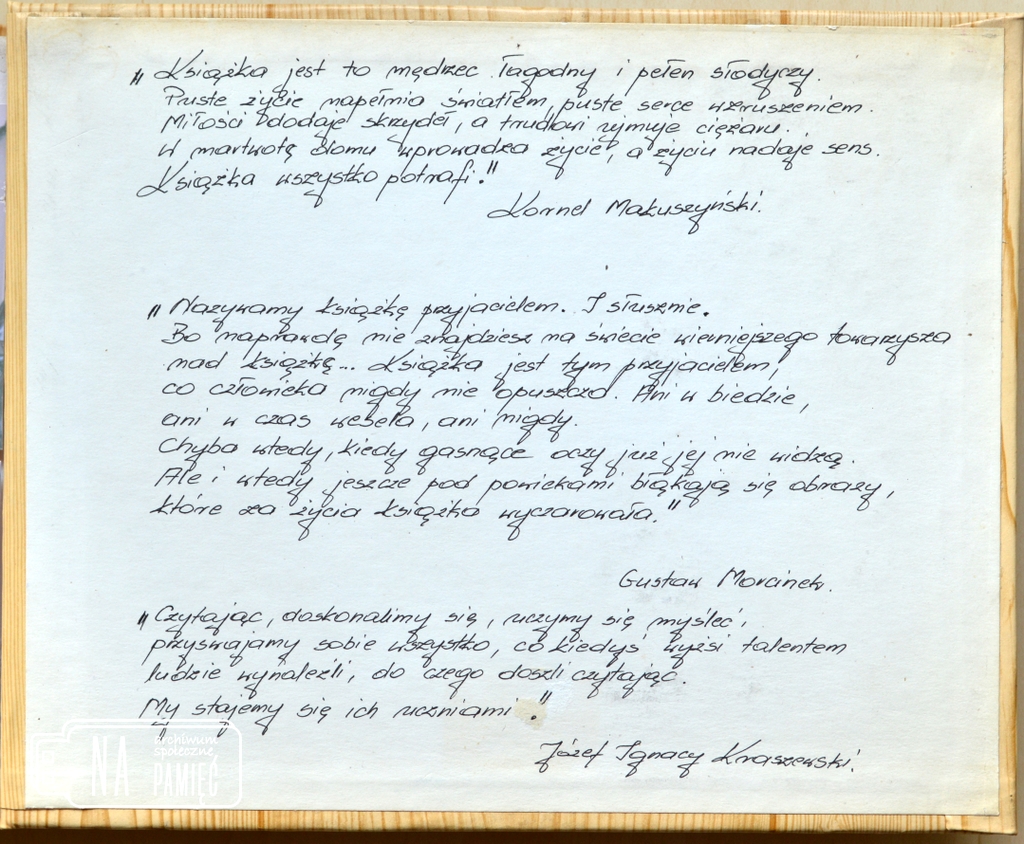 „Książka jest to mędrzec łagodny i pełen słodyczy.
Puste życie napełnia światłem, puste serce wzruszeniem.
Miłości dodaje skrzydeł, a trudowi ujmuje ciężaru.
W martwotę domu wprowadza życie, a życiu nadaje sens.
Książka wszystko potrafi."
Kornel Makuszyński.
„Nazywamy książkę przyjacielem. I słusznie.
Bo naprawdę nie znajdziesz na świecie wierniejszego towarzysza
nad książkę... Książka jest tym przyjacielem,
co człowieka nigdy nie opuszcza. Ani w biedzie,
ani w czas wesela, ani nigdy.
Chyba wtedy, kiedy gasnące oczy już jej nie widzą.
Ale i wtedy jeszcze pod powiekami błąkają się obrazy,
które za życia książka wyczarowała."
Gustaw Morcinek.
„Czytając, doskonalimy się, uczymy się myśleć,
przyswajamy sobie wszystko, co kiedyś wyżsi talentem
ludzie wynaleźli, do czego doszli czytając.
My stajemy się ich uczniami."
Józef Ignacy Kraszewski.
NA
archiwum
społeczne
PAMIĘĆ